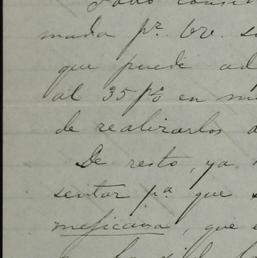 Todo consid
mada pr. Ud. s
que puede ad
al 35 p% en m
de realizarlos a
De resto, ya
sentar pa. que s
mejicana, que e